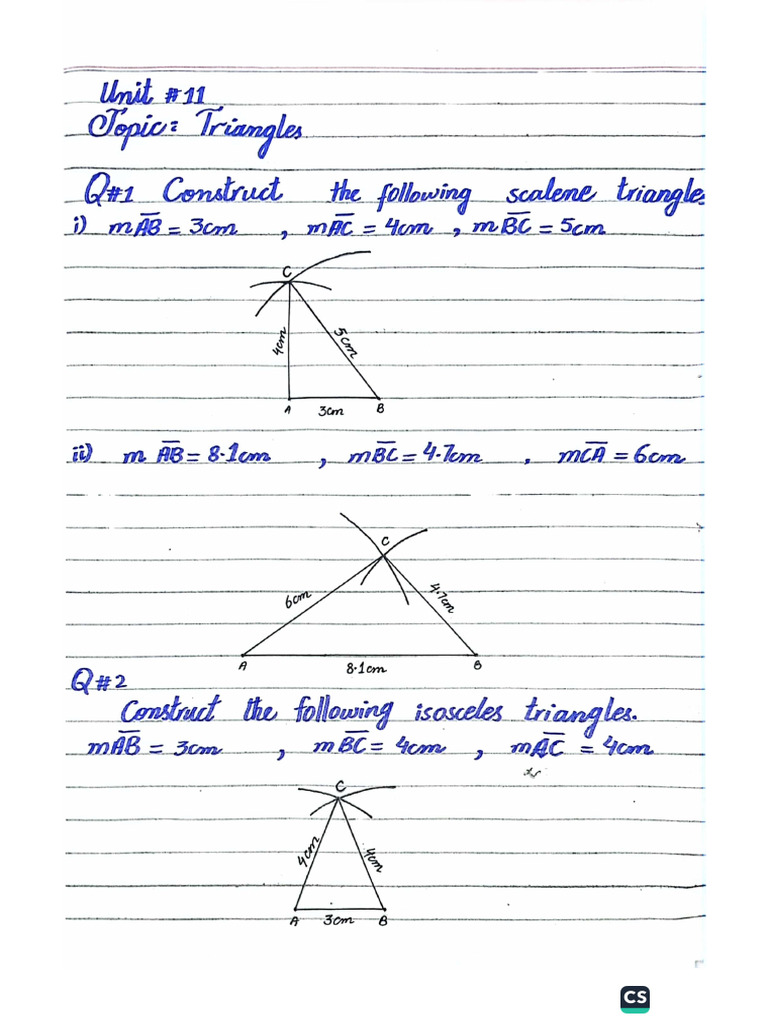 Unit #11
Topic: Triangles
Q#1 Construct the following scalene triangle.
i) mAB = 3cm , mAC = 4cm , mBC = 5cm
C
4cm
5cm
A 3cm B
ii) m AB = 8.1cm , mBC = 4.7cm , mCA = 6cm
C
6cm
4.7cm
A 8.1cm B
Q#2
Construct the following isosceles triangles.
mAB = 3cm , mBC = 4cm , mAC = 4cm
C
4cm
4cm
A 3cm B
CS